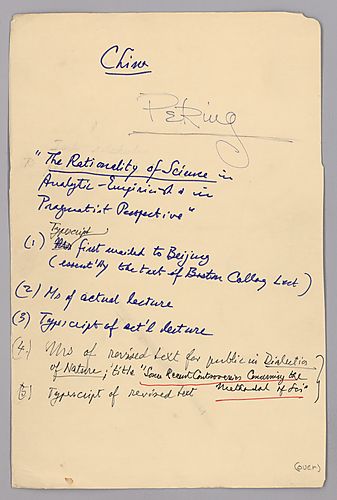 China
Peking
"The Rationality of Science in
Analytic-Empiricist & in
Pragmatist Perspective"
Typescript
(1) first mailed to Beijing
(essent'lly the text of Boston Colloq Lect)
(2) Ms of actual lecture
(3) Typescript of act'l lecture
(4) Ms of revised text for public in Dialectics
of Nature; title "Some Recent Controversies Concerning the
Method of Sci"
(5) Typescript of revised text
(over)